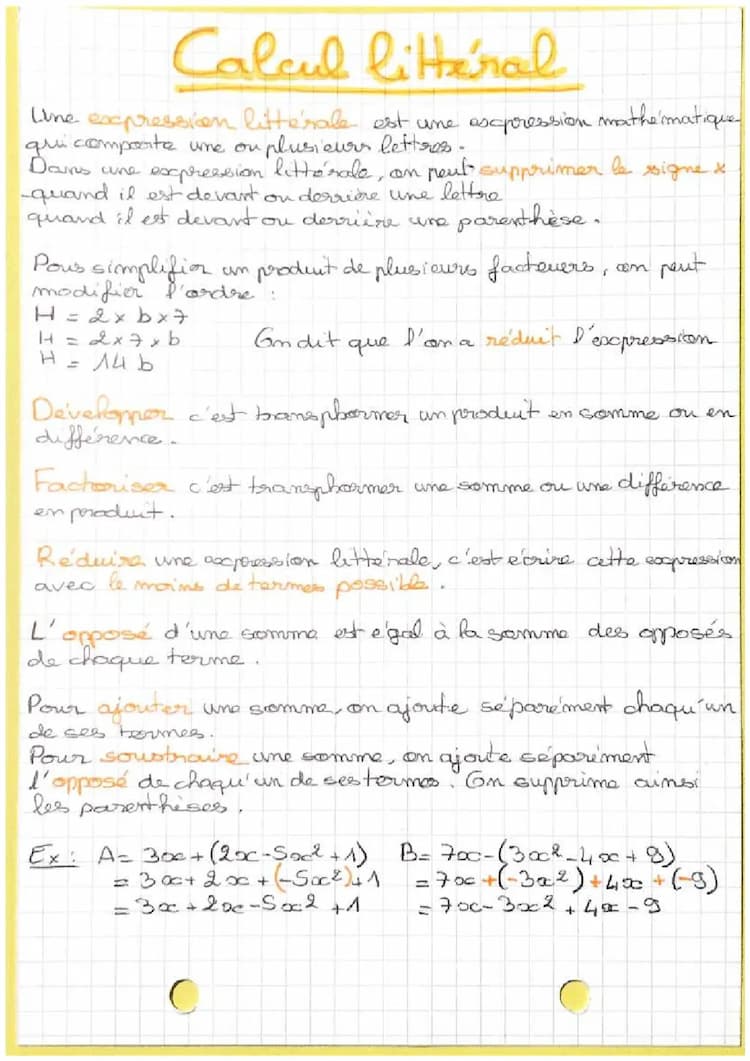 Calcul littéral
Une expression littérale est une expression mathématique
qui comporte une ou plusieurs lettres.
Dans une expression littérale, on peut supprimer le signe x
-quand il est devant ou derrière une lettre
quand il est devant ou derrière une parenthèse.
Pour simplifier un produit de plusieurs facteurs, on peut
modifier l'ordre :
H = 2 x b x 7
H = 2 x 7 x b On dit que l'on a réduit l'expression
H = 14 b
Développer c'est transphormer un produit en somme ou en
différence.
Factoriser c'est transphormer une somme ou une différence
en produit.
Réduire une expression littérale, c'est écrire cette expression
avec le moins de termes possible.
L'opposé d'une somme est égal à la somme des opposés
de chaque terme.
Pour ajouter une somme, on ajoute séparément chaqu'un
de ses termes.
Pour soustraire une somme, on ajoute séparément
l'opposé de chaqu'un de ses termes. On supprime ainsi
les parenthèses.
Ex : A= 3x+(2x-5x²+1) B= 7x-(3x²-4x+9)
= 3x+2x+(-5x²)+1 = 7x+(-3x²)+4x+(-9)
= 3x+2x-5x²+1 = 7x-3x²+4x-9